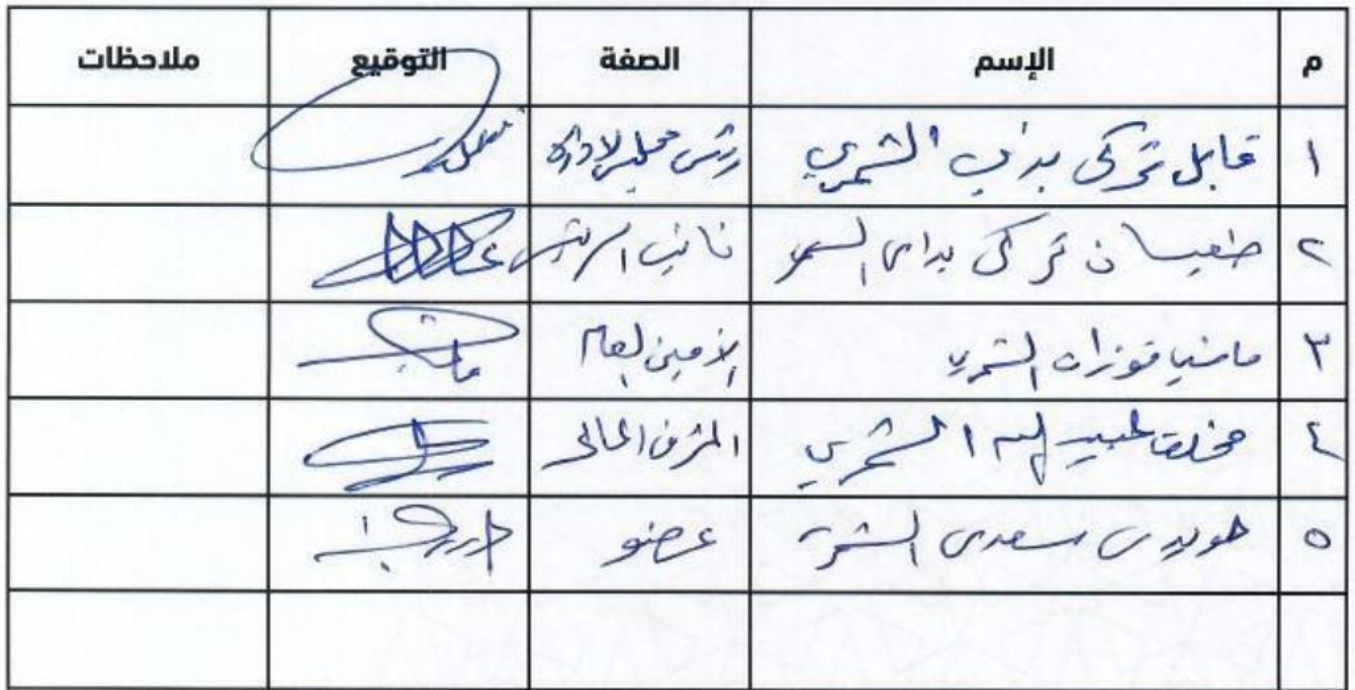 م الإسم الصفة التوقيع ملاحظات
١ قابل تركي بداي الشمري رئيس مجلس الادارة
٢ تركي بداي الشمري نائب الرئيس
٣ فوزان الشمري الأمين العام
٤ مخلف الشمري المشرف المالي
٥ سعدي الشمري عضو